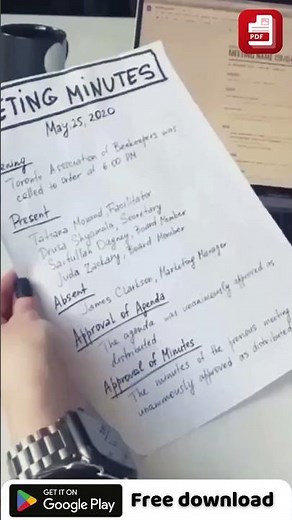 PDF
ETING MINUTES
May, 25, 2020
ening
Toronto Association of Beekeepers was
called to order at 6:00 PM
Present
Tatiana Morand, Facilitator
Drusa Shyamala, Secretary
Saifullah Dagney, Board Member
Juda Zackary, Board Member
Absent
James Clarkson, Marketing Manager
Approval of Agenda
The agenda was unanimously approved as
distributed
Approval of Minutes
The minutes of the previous meeting
unanimously approved as distributed
GET IT ON
Google Play
Free download